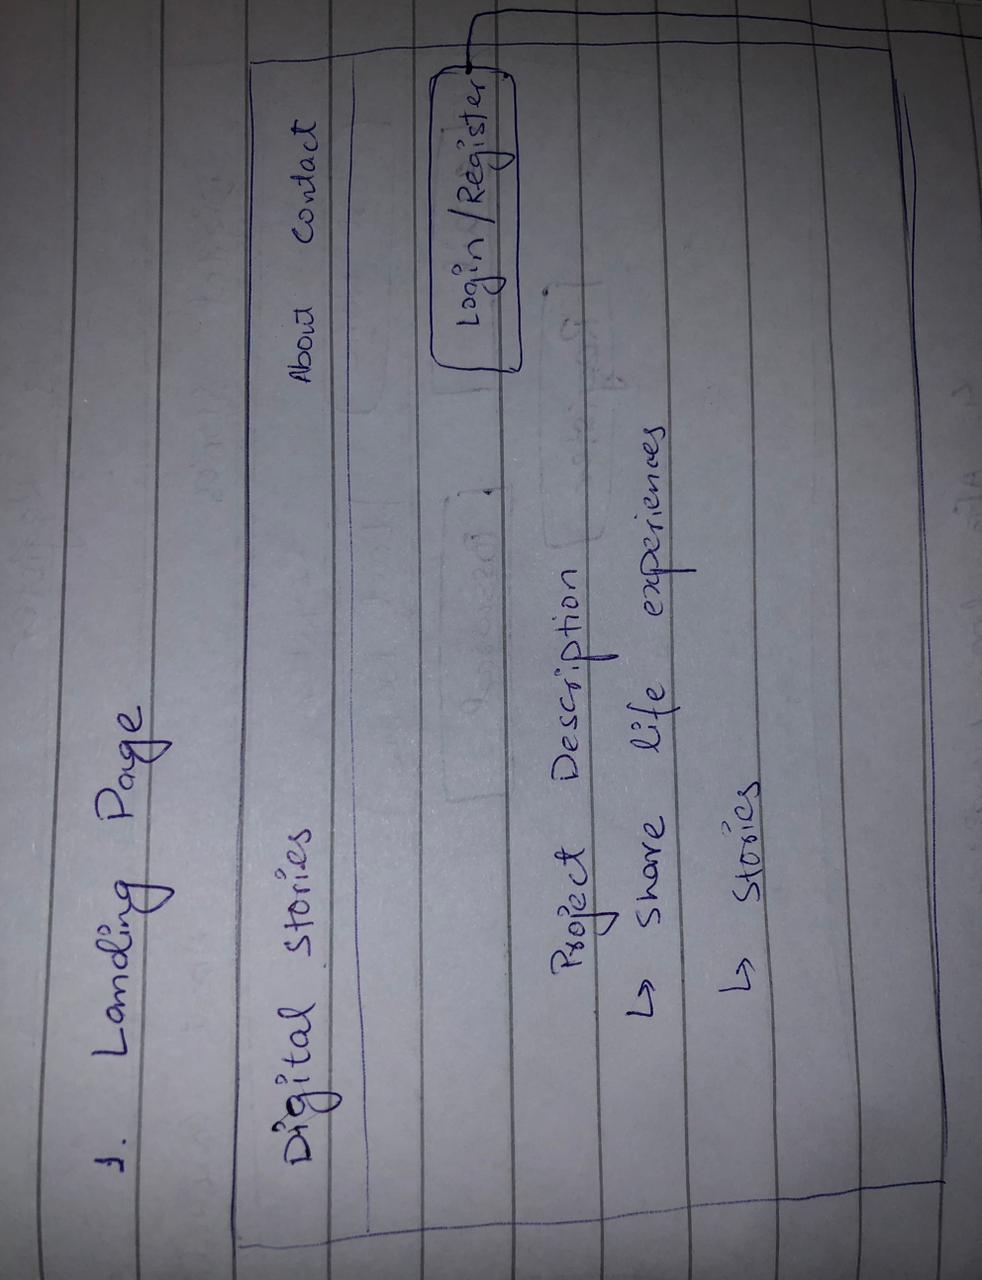 1. Landing Page
Digital Stories About Contact
Login/Register
Project Description
↳ Share life experiences
↳ Stories